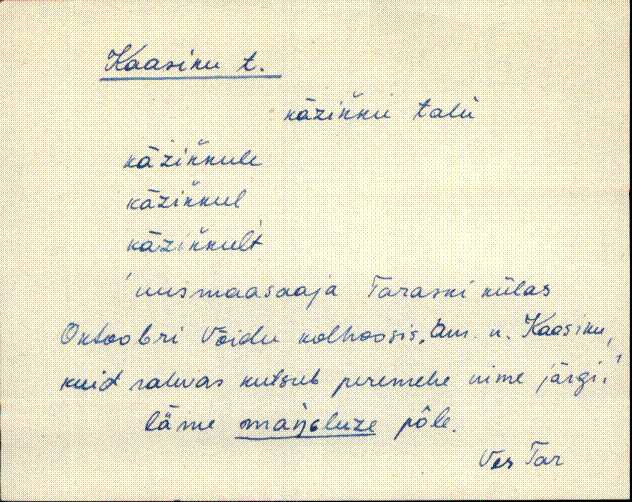 Kaasiku t.
kāziʾkku talū
kāžiʾkkule
kāziʾkkul
kāziʾkkult
'uusmaasaaja Taraski külas
Oktoobri Võidu kolhoosis, am. n. Kaasiku,
kuid rahvas kutsub peremehe nime järgi.'
läme maŋgluze pōle.
Ves Tar